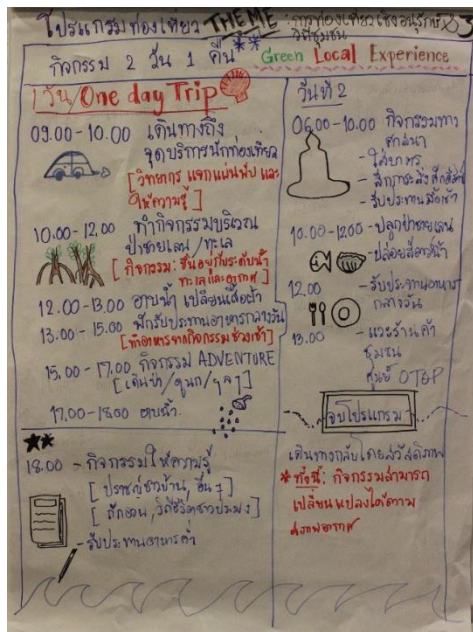 โปรแกรมท่องเที่ยว THEME : การท่องเที่ยวเชิงอนุรักษ์
วิถีชุมชน
กิจกรรม 2 วัน 1 คืน ** Green Local Experience
1 วัน/One day Trip
09.00-10.00 เดินทางถึง
จุดบริการนักท่องเที่ยว
[วิทยากร แจกแผ่นพับ และ
ให้ความรู้]
10.00-12.00 ทำกิจกรรมบริเวณ
ป่าชายเลน/ทะเล
[กิจกรรม: ขึ้นอยู่กับระดับน้ำ
ทะเลและอากาศ]
12.00-13.00 อาบน้ำ เปลี่ยนเสื้อผ้า
13.00-15.00 พักรับประทานอาหารกลางวัน
[ทำอาหารจากกิจกรรมช่วงเช้า]
15.00-17.00 กิจกรรม ADVENTURE
[เดินป่า/ดูนก/ฯลฯ]
17.00-18.00 อาบน้ำ
**
18.00 - กิจกรรมให้ความรู้
[ปราชญ์ชาวบ้าน, อื่นๆ]
[วิถีชีวิตชาวประมง]
- รับประทานอาหารค่ำ
วันที่ 2
06.00-10.00 กิจกรรมทาง
ศาสนา
- ใส่บาตร
- รับประทานมื้อเช้า
10.00-12.00 - ปลูกป่าชายเลน
- ปล่อยสัตว์น้ำ
12.00 - รับประทานอาหาร
กลางวัน
13.00 - แวะร้านค้า
ชุมชน
ศูนย์ OTOP
จบโปรแกรม
เดินทางกลับโดยสวัสดิภาพ
* ทั้งนี้: กิจกรรมสามารถ
เปลี่ยนแปลงได้ตาม
สภาพอากาศ